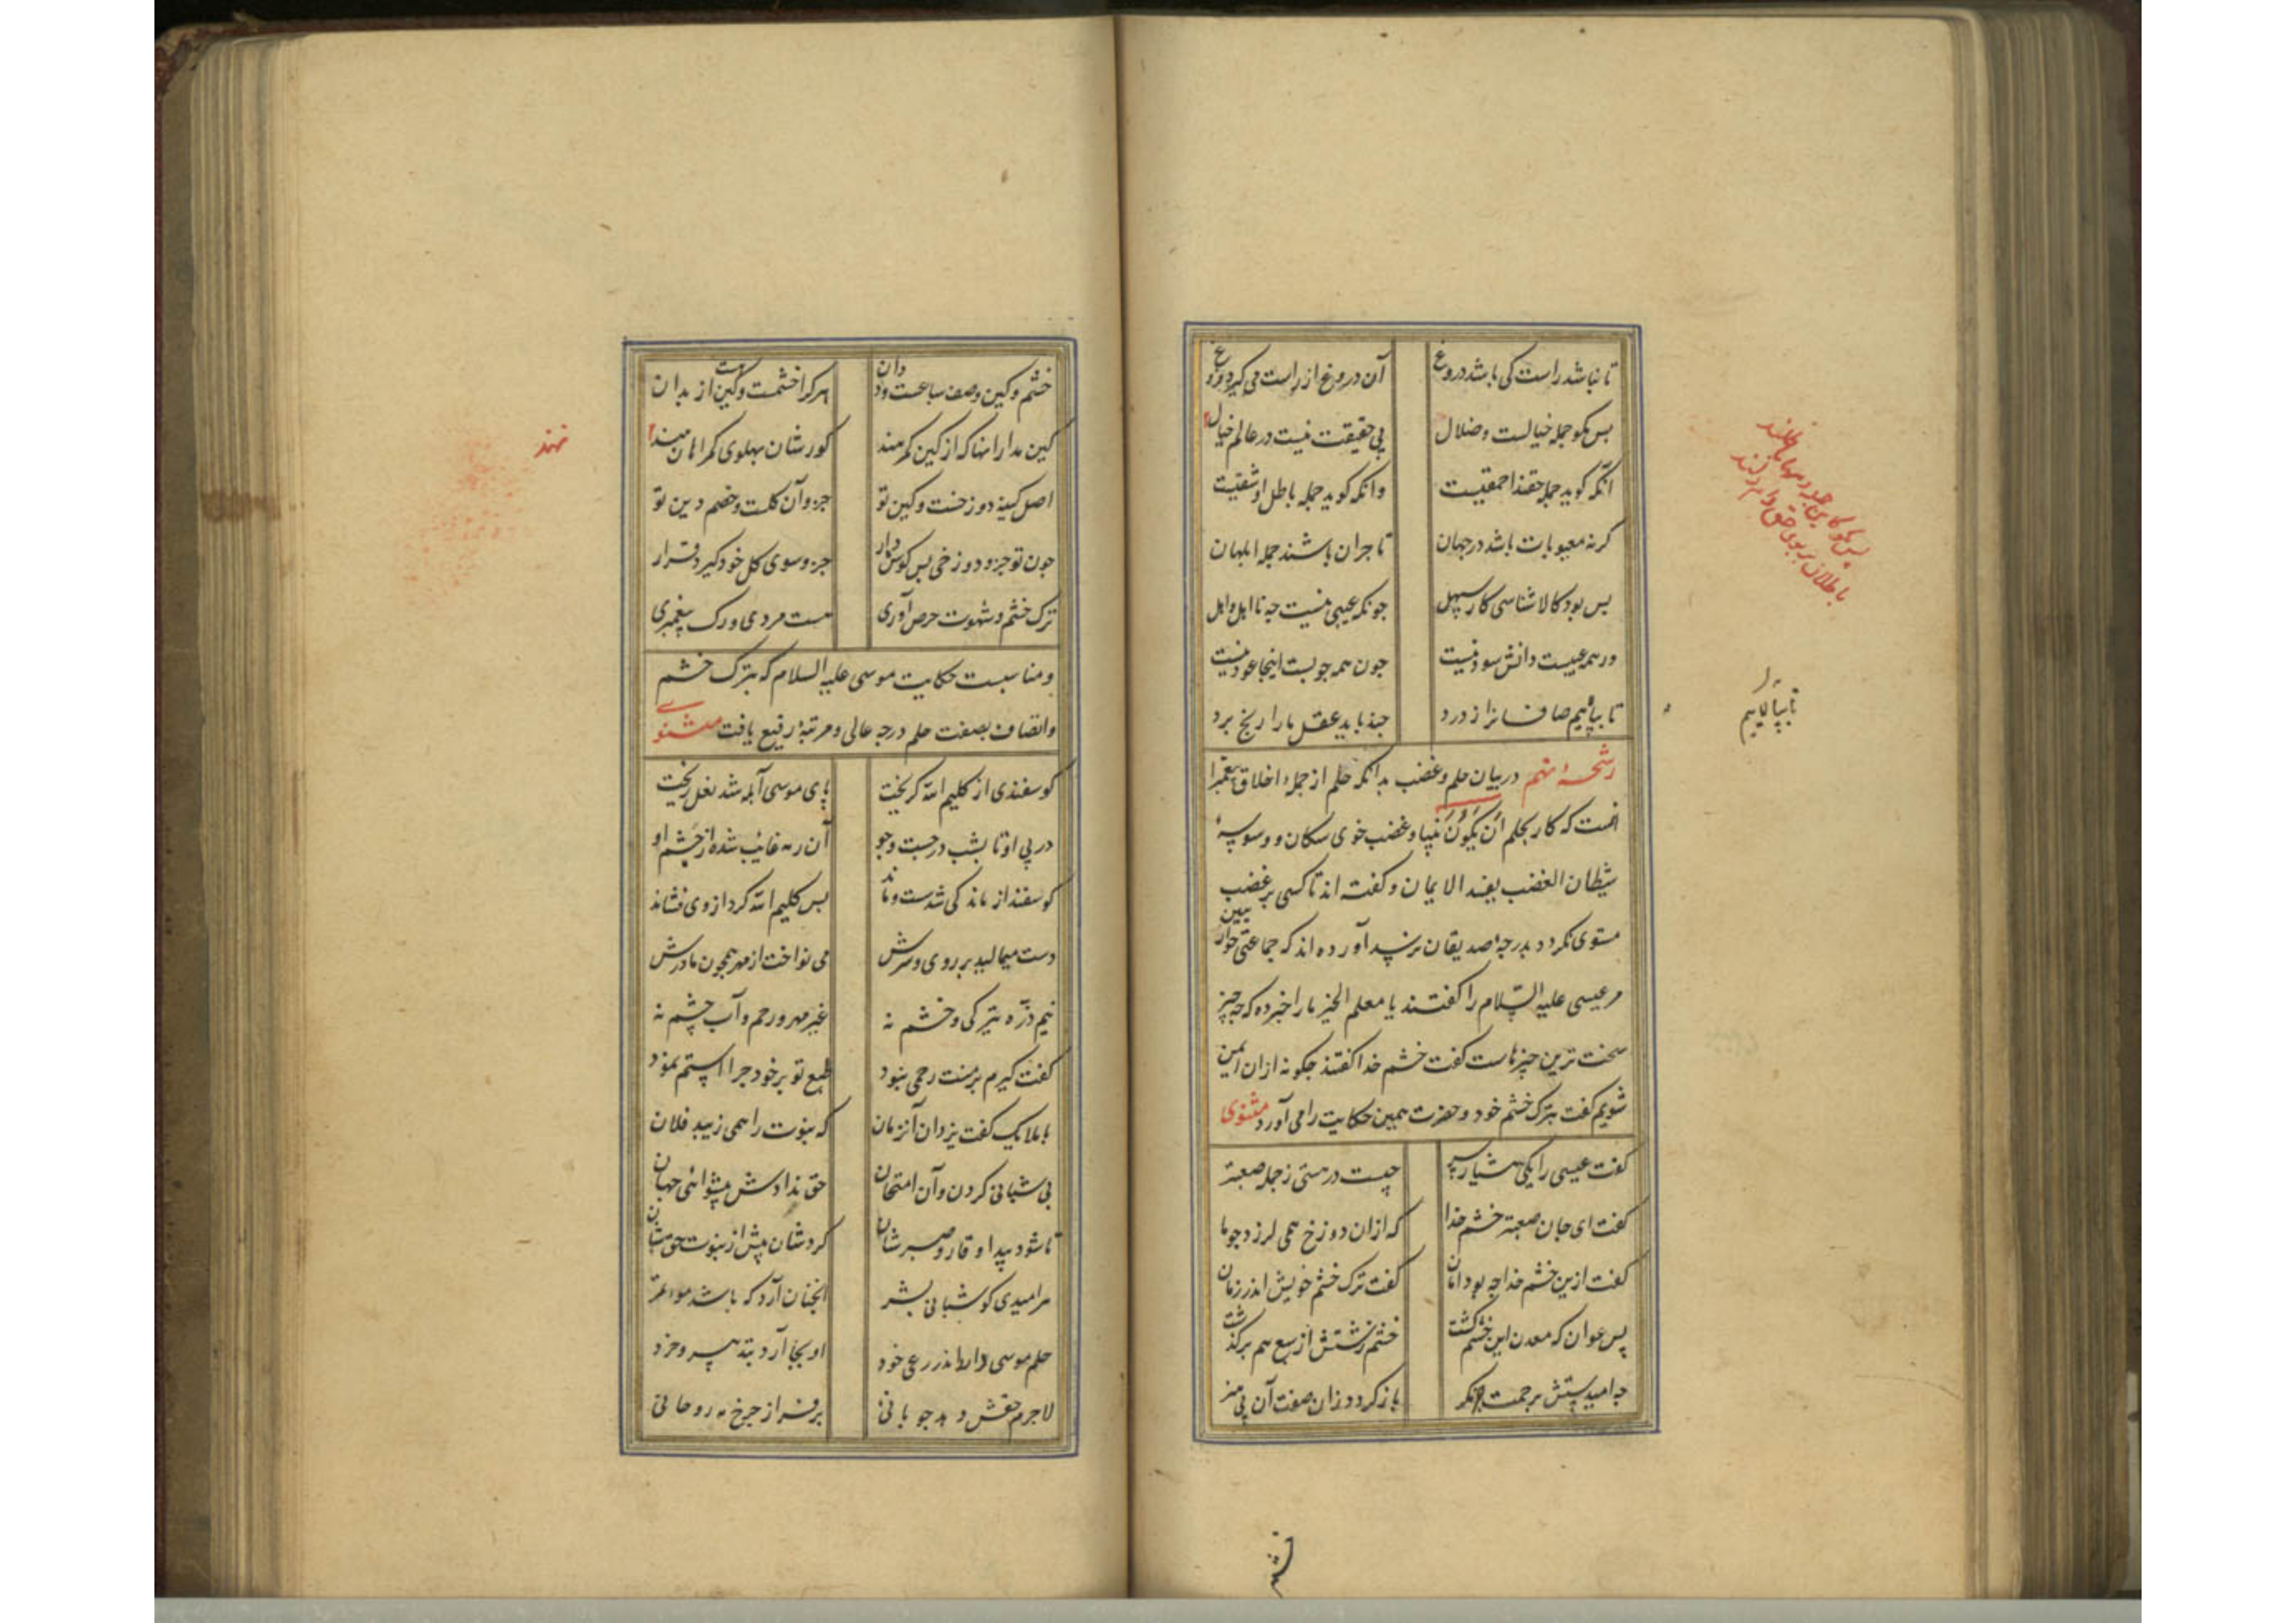 تا نباشد راست کی باشد دروغ آن دروغ از راست می گیرد فروغ
بس مکو جمله خیالست و ضلال بی حقیقت نیست در عالم خیال
آنکه کوید جمله حقند احمقیست وانکه کوید جمله باطل او شقیست
کرنه معیوبات باشد در جهان تاجران باشند جمله ابلهان
بس بود کالا شناسی کار سهل جونکه عیبی نیست جه نااهل و اهل
ور همه عیبست دانش سود نیست جون همه جوبست اینجا عود نیست
تا بپالاییم صافانرا ز درد جند باید عقل ما را رنج برد
رشحهٔ نهم در بیان حلم و غضب بدانکه حلم از جملهٔ اخلاق پیغمبرا
نست که کار بحلم ان یکون نبیا و غضب خوی سکان و وسوسهٔ
شیطان الغضب یفسد الایمان و کفته اند تا کسی بر غضب
مستوی نکردد بدرجهٔ صدیقان نرسد آورده اند که جماعتی حوار
یین
مر عیسی علیه السّلام را کفتند یا معلم الخیر ما را خبر ده که جه چیز
سخت ترین چیزهاست کفت خشم خدا کفتند جکونه ازان ایمن
شویم کفت بترک خشم خود و حضرت همین حکایت را می آورد مثنوی
کفت عیسی را یکی هشیار سر چیست در هستی ز جمله صعبتر
کفت ای جان صعبتر خشم خدا که ازان دوزخ همی لرزد جو ما
کفت ازین خشم خدا جه بود امان کفت ترک خشم خویش اندر زمان
پس عوان که معدن این خشم کشت خشم زشتش از سبع هم برکذشت
جه امیدستش برحمت جز مکر باز کردد زان صفت آن بی هنر
تا بپالاییم
خشم و کین وصف سباعست و ددان هرکرا خشمست و کین هست از بدان
کین مدار آنها که از کین کمرهند کورشان پهلوی کمراهان نهند
نهند
اصل کینه دوزخست و کین تو جزو آن کلست و خصم دین تو
جون تو جزو دوزخی بس کوش دار جزو سوی کل خود کیرد قرار
ترک خشم و شهوت حرص آوری هست مردی و رک پیغمبری
و مناسبست حکایت موسی علیه السلام که بترک خشم
و اتصاف بصفت حلم درجه عالی و مرتبهٔ رفیع یافت مثنوی
کوسفندی از کلیم الله کریخت پای موسی آبله شد نعل ریخت
در پی او تا بشب در جست و جو آن رمه غائب شده از چشم او
کوسفند از ماندکی شد سست و ماند بس کلیم الله کرد از وی فشاند
دست میمالید بر روی و سرش می نواخت از مهر همجون مادرش
نیم ذرّه تیرکی و خشم نه غیر مهر و رحم و آب چشم نه
کفت کیرم بر منت رحمی نبود طبع تو بر خود جرا استم نمود
با ملایک کفت یزدان آنزمان که نبوت را همی زیبد فلان
بی شبانی کردن و آن امتحان حق ندادش پیشوائی جهان
تا شود پیدا وقار و صبرشان کردشان پیش از نبوت حق شبان
هر امیری کو شبانی بشر آنجنان آرد که باشد مؤتمر
حلم موسی وار اندر رعی خود او بجا آرد بتدبیر و خرد
لاجرم حقش دهد جوبانئ برفراز جرخ مه روحانئ